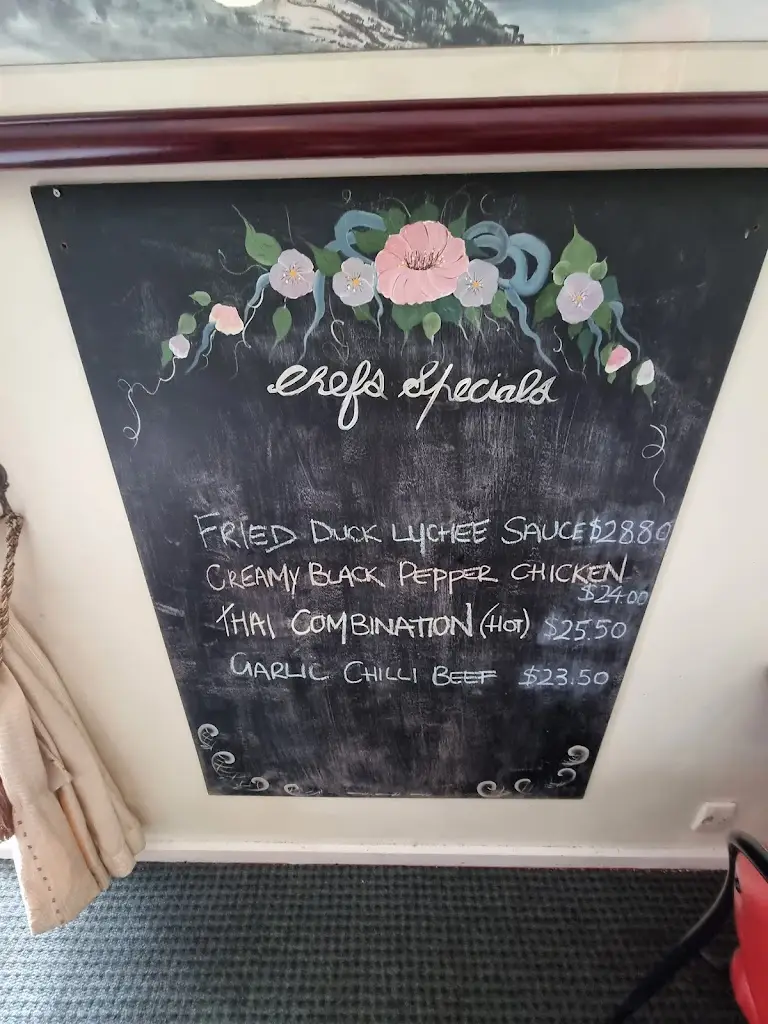 chefs specials
FRIED DUCK LYCHEE SAUCE $28.80
CREAMY BLACK PEPPER CHICKEN
$24.00
THAI COMBINATION (HOT) $25.50
GARLIC CHILLI BEEF $23.50